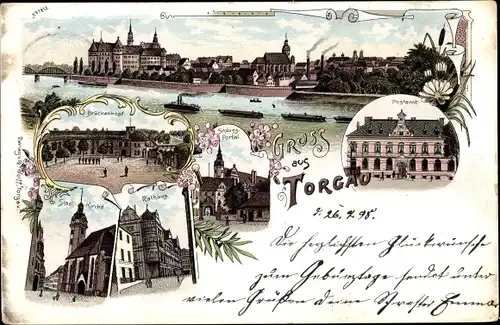 Postamt.
Brückenkopf.
Schloss-
Portal.
GRUSS
aus
TORGAU
Stadt-Kirche
Rathaus.
d. 26. 7. 98.
Die herzlichsten Glückwünsche
zum Geburtstage sendet unter
vielen Grüßen deine Schwester Emma